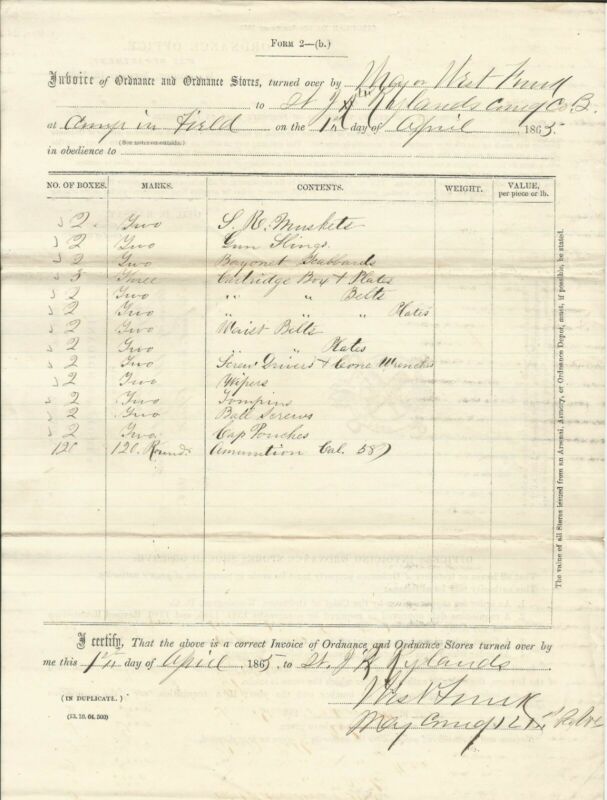 FORM 2—(b.)
Invoice of Ordnance and Ordnance Stores, turned over by Major West Funk
to Lt J K Rylands Comg Co B.
at Camp in Field on the 1st day of April 1865.
(See notes on outside.)
in obedience to
NO. OF BOXES. MARKS. CONTENTS. WEIGHT. VALUE, per piece or lb.
2 Two S. R. Muskets
2 Two Gun Slings
2 Two Bayonet Scabbards
3 Three Cartridge Box & Plates
2 Two " " Belts
2 Two " " " Plates
2 Two Waist Belts
2 Two " Plates
2 Two Screw Drivers & Cone Wrenches
2 Two Wipers
2 Two Tompins
2 Two Ball Screws
2 Two Cap Pouches
120 120. Rounds Amunition Cal. 58
The value of all Stores issued from an Arsenal, Armory, or Ordnance Depot, must, if possible, be stated.
I certify, That the above is a correct Invoice of Ordnance and Ordnance Stores turned over by
me this 1st day of April 1865 to Lt. J K Rylands
West Funk
(IN DUPLICATE.)
Maj Comg 121st P.V.
(23. 10. 64. 500)